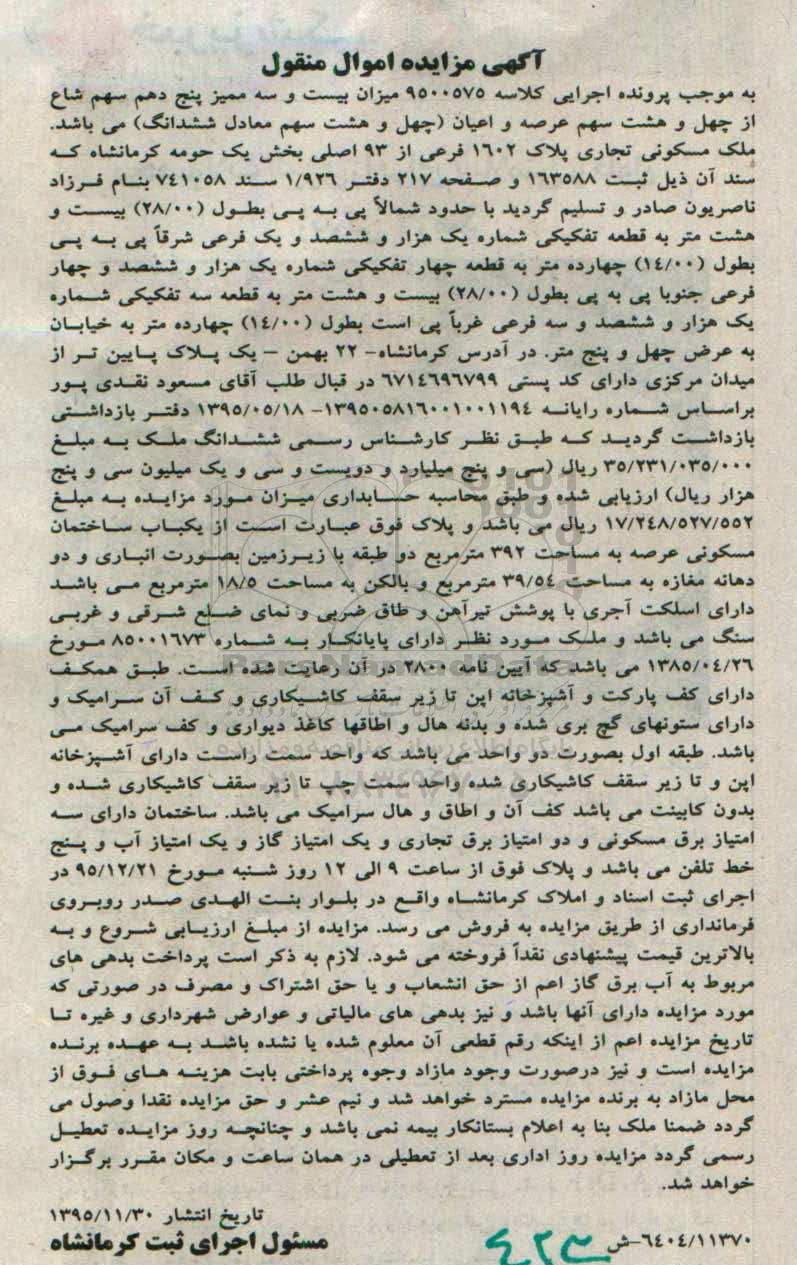 آگهی مزایده اموال منقول
به موجب پرونده اجرایی کلاسه ۹۵۰۰۵۷۵ میزان بیست و سه ممیز پنج دهم سهم شاع
از چهل و هشت سهم عرصه و اعیان (چهل و هشت سهم معادل ششدانگ) می باشد.
ملک مسکونی تجاری پلاک ۱۶۰۲ فرعی از ۹۳ اصلی بخش یک حومه کرمانشاه که
سند آن ذیل ثبت ۱۶۳۵۸۸ و صفحه ۲۱۷ دفتر ۱/۹۲۶ سند ۷۴۱۰۵۸ بنام فرزاد
ناصریون صادر و تسلیم گردید با حدود شمالاً پی به پی بطول (۲۸/۰۰) بیست و
هشت متر به قطعه تفکیکی شماره یک هزار و ششصد و یک فرعی شرقاً پی به پی
بطول (۱۴/۰۰) چهارده متر به قطعه چهار تفکیکی شماره یک هزار و ششصد و چهار
فرعی جنوبا پی به پی بطول (۲۸/۰۰) بیست و هشت متر به قطعه سه تفکیکی شماره
یک هزار و ششصد و سه فرعی غرباً پی است بطول (۱۴/۰۰) چهارده متر به خیابان
به عرض چهل و پنج متر. در آدرس کرمانشاه- ۲۲ بهمن – یک پلاک پایین تر از
میدان مرکزی دارای کد پستی ۶۷۱۴۶۹۶۷۹۹ در قبال طلب آقای مسعود نقدی پور
براساس شماره رایانه ۱۳۹۵۰۵۸۱۶۰۰۱۰۰۱۱۹۴- ۱۳۹۵/۰۵/۱۸ دفتر بازداشتی
بازداشت گردید که طبق نظر کارشناس رسمی ششدانگ ملک به مبلغ
۳۵/۲۳۱/۰۳۵/۰۰۰ ریال (سی و پنج میلیارد و دویست و سی و یک میلیون سی و پنج
هزار ریال) ارزیابی شده و طبق محاسبه حسابداری میزان مورد مزایده به مبلغ
۱۷/۲۴۸/۵۲۷/۵۵۲ ریال می باشد و پلاک فوق عبارت است از یکباب ساختمان
مسکونی عرصه به مساحت ۳۹۲ مترمربع دو طبقه با زیرزمین بصورت انباری و دو
دهانه مغازه به مساحت ۳۹/۵۴ مترمربع و بالکن به مساحت ۱۸/۵ مترمربع می باشد
دارای اسلکت آجری با پوشش تیرآهن و طاق ضربی و نمای ضلع شرقی و غربی
سنگ می باشد و ملک مورد نظر دارای پایانکار به شماره ۸۵۰۰۱۶۷۳ مورخ
۱۳۸۵/۰۴/۲۶ می باشد که آیین نامه ۲۸۰۰ در آن رعایت شده است. طبق همکف
دارای کف پارکت و آشپزخانه اپن تا زیر سقف کاشیکاری و کف آن سرامیک و
دارای ستونهای گچ بری شده و بدنه هال و اطاقها کاغذ دیواری و کف سرامیک می
باشد. طبقه اول بصورت دو واحد می باشد که واحد سمت راست دارای آشپزخانه
اپن و تا زیر سقف کاشیکاری شده واحد سمت چپ تا زیر سقف کاشیکاری شده و
بدون کابینت می باشد کف آن و اطاق و هال سرامیک می باشد. ساختمان دارای سه
امتیاز برق مسکونی و دو امتیاز برق تجاری و یک امتیاز گاز و یک امتیاز آب و پنج
خط تلفن می باشد و پلاک فوق از ساعت ۹ الی ۱۲ روز شنبه مورخ ۹۵/۱۲/۲۱ در
اجرای ثبت اسناد و املاک کرمانشاه واقع در بلوار بنت الهدی صدر روبروی
فرمانداری از طریق مزایده به فروش می رسد. مزایده از مبلغ ارزیابی شروع و به
بالاترین قیمت پیشنهادی نقداً فروخته می شود. لازم به ذکر است پرداخت بدهی های
مربوط به آب برق گاز اعم از حق انشعاب و یا حق اشتراک و مصرف در صورتی که
مورد مزایده دارای آنها باشد و نیز بدهی های مالیاتی و عوارض شهرداری و غیره تا
تاریخ مزایده اعم از اینکه رقم قطعی آن معلوم شده یا نشده باشد به عهده برنده
مزایده است و نیز درصورت وجود مازاد وجوه پرداختی بابت هزینه های فوق از
محل مازاد به برنده مزایده مسترد خواهد شد و نیم عشر و حق مزایده نقدا وصول می
گردد ضمنا ملک بنا به اعلام بستانکار بیمه نمی باشد و چنانچه روز مزایده تعطیل
رسمی گردد مزایده روز اداری بعد از تعطیلی در همان ساعت و مکان مقرر برگزار
خواهد شد.
تاریخ انتشار ۱۳۹۵/۱۱/۳۰
۶۴۰۴/۱۱۳۷۰-ش مسئول اجرای ثبت کرمانشاه
۴۲۳